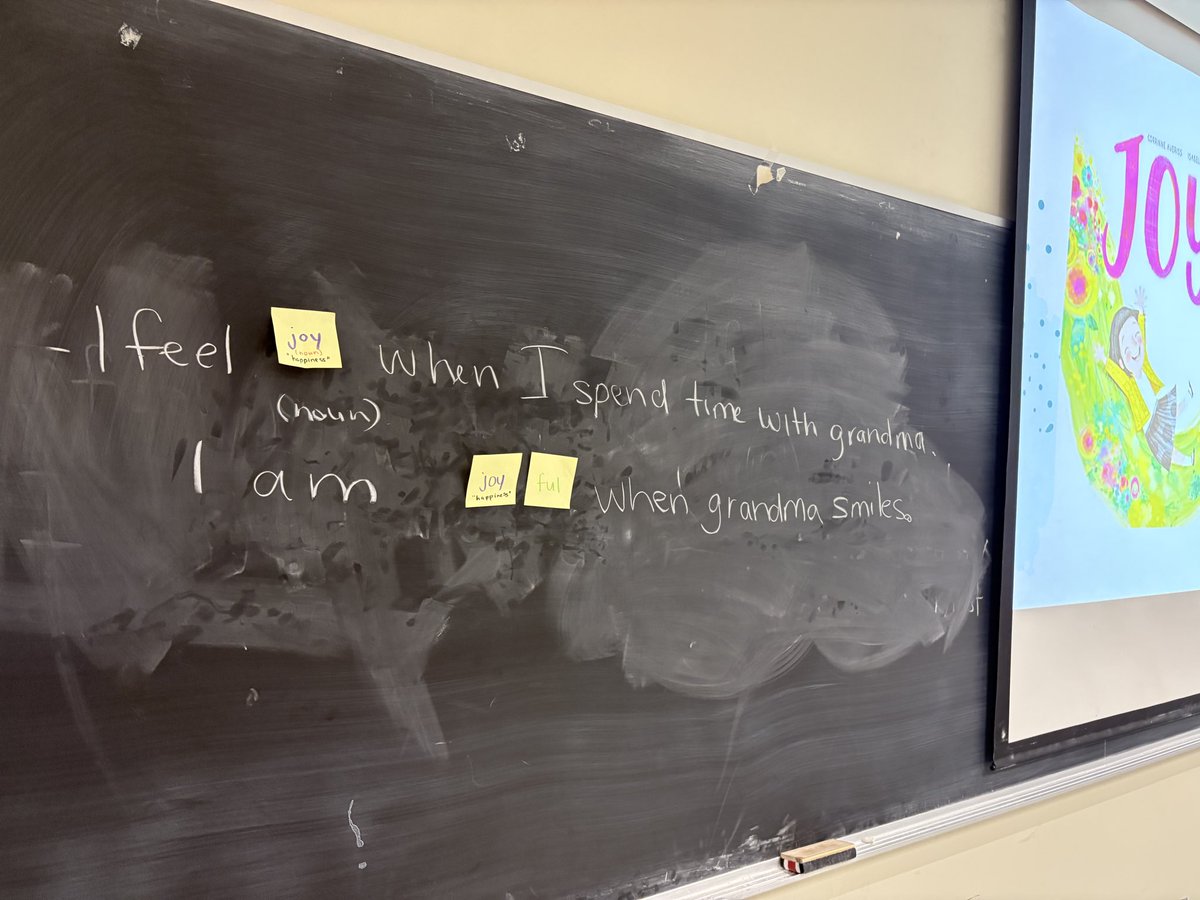 - I feel joy when I spend time with grandma.
(noun)
"happiness"
(noun)
I am joy ful when grandma smiles.
"happiness"
CORRINNE AVERISS
JOY